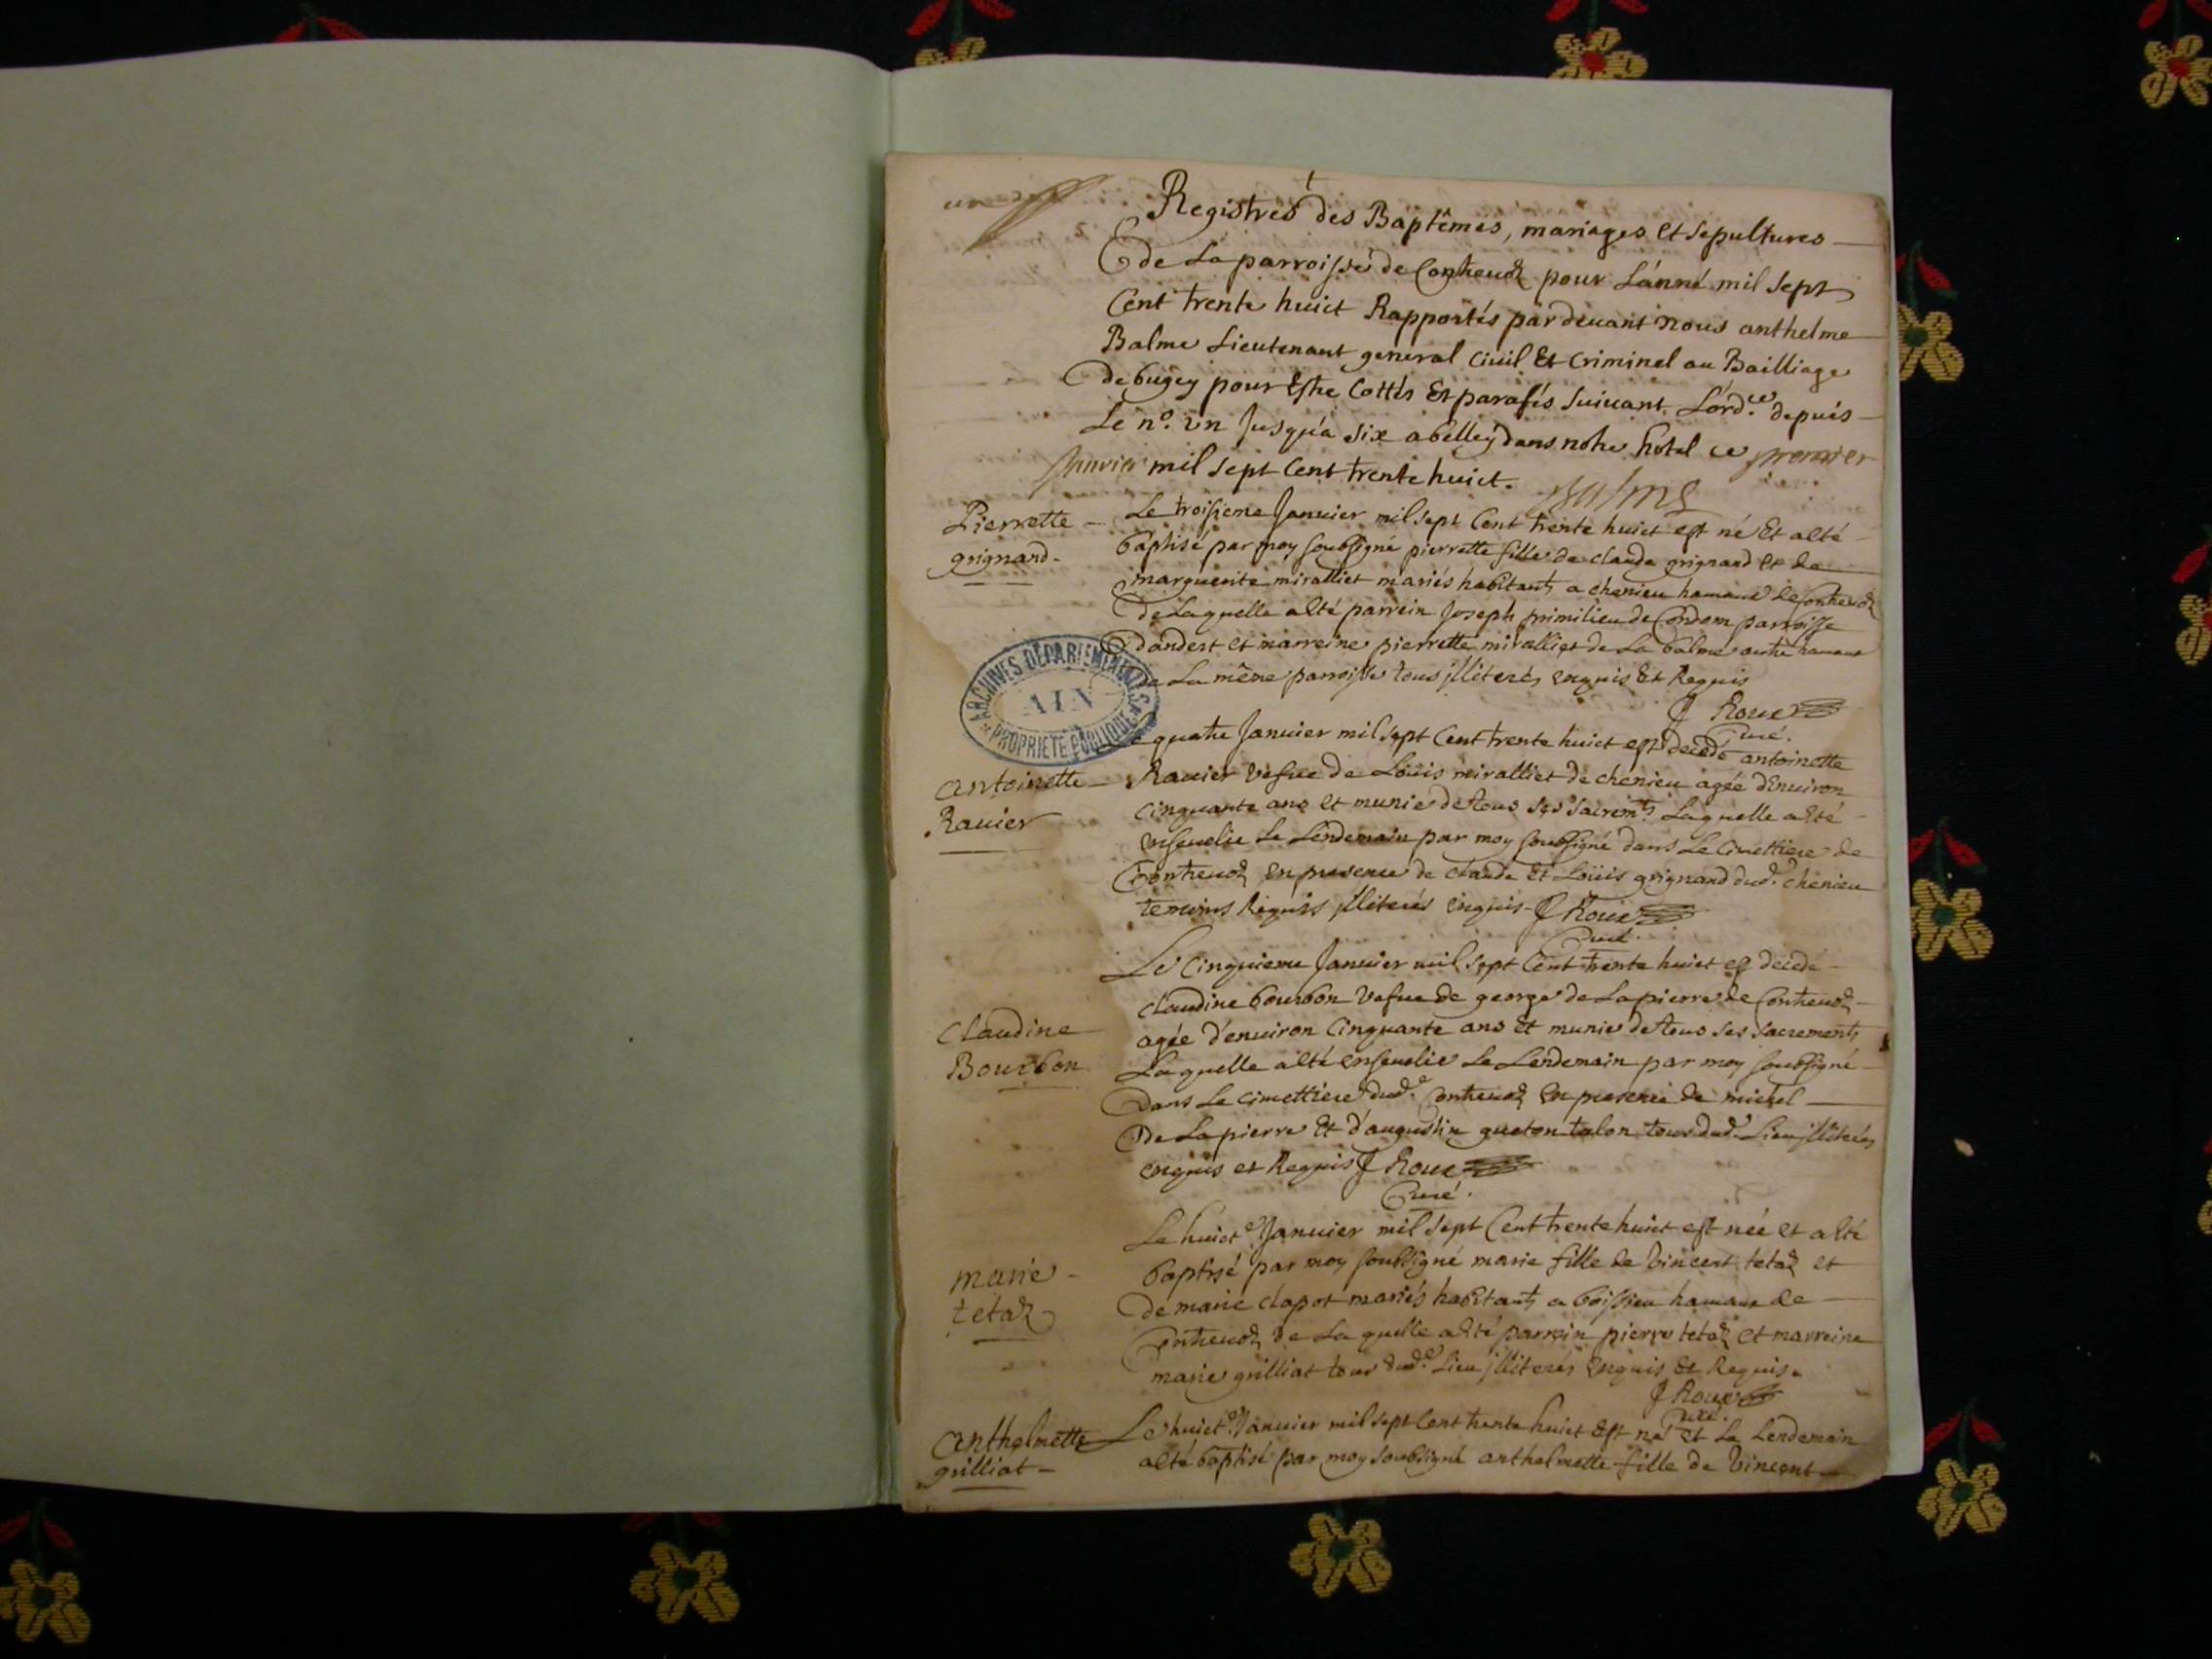 un
Registres des Baptêmes, mariages et sepultures
de La parroisse de Contrevoz pour L'anné mil sept
Cent trente huict Rapportés par devant nous anthelme
Balme Lieutenant general Civil Et Criminel au Bailliage
de bugey pour Estre Cottés Et parafés suivant L'ord.ce depuis
Le n.o un Jusqu'a six a belley dans notre hotel ce premier
Janvier mil sept Cent trente huict. Balme
Pierrette
grignand
Le troisieme Janvier mil sept Cent trente huict est né Et a eté
baptisé par moy soubsigné pierrette fille de claude grignand et de
marguerite miralliet mariés habitants a chenieu hameau de Contrevoz
de Laquelle a eté parrein Joseph primilieu de Condom parroisse
d'andert et marreine pierrette miralliet de La balme autre hameau
de La même parroisse tous illiterés enquis Et Requis
J Roux
Curé.
ARCHIVES DÉPARTEMENTALES
AIN
PROPRIÉTÉ PUBLIQUE
Antoinette
Ravier
Le quatre Janvier mil sept Cent trente huict est decedé antoinette
Ravier vefve de Loüis miralliet de chenieu agée d'Environ
cinquante ans et munie de tous ses sacrem.ts Laquelle a eté
ensevelie Le Lendemain par moy soubsigné dans Le Cimettiere de
Contrevoz En presence de claude Et Loüis grignand dud. chenieu
temoins Requis illiterés enquis J Roux
Curé.
Claudine
Bourbon
Le Cinquieme Janvier mil sept Cent trente huict est decedé
claudine bourbon vefve de george de Lapierre de Contrevoz
agée d'environ Cinquante ans et munie de tous ses sacrements
Laquelle a eté ensevelie Le Lendemain par moy soubsigné
Dans Le cimettiere dud. Contrevoz En presence de michel
De Lapierre Et d'augustin gueton talon tous dud. Lieu illiterés
enquis et Requis J Roux
Curé.
marie
tetaz
Le huict.e Janvier mil sept Cent trente huict est née et a eté
baptisé par moy soubsigné marie fille de Vincent tetaz et
de marie clapot mariés habitants a boissieu hameau de
Contrevoz de La quelle a eté parrein pierre tetaz et marreine
marie grilliat tous dud.e Lieu illiterés enquis Et Requis.
J Roux
Curé.
Anthelmette
grilliat
Le huict.e Janvier mil sept Cent trente huict Est né et Le Lendemain
a eté baptisé par moy soubsigné anthelmette fille de Vincent